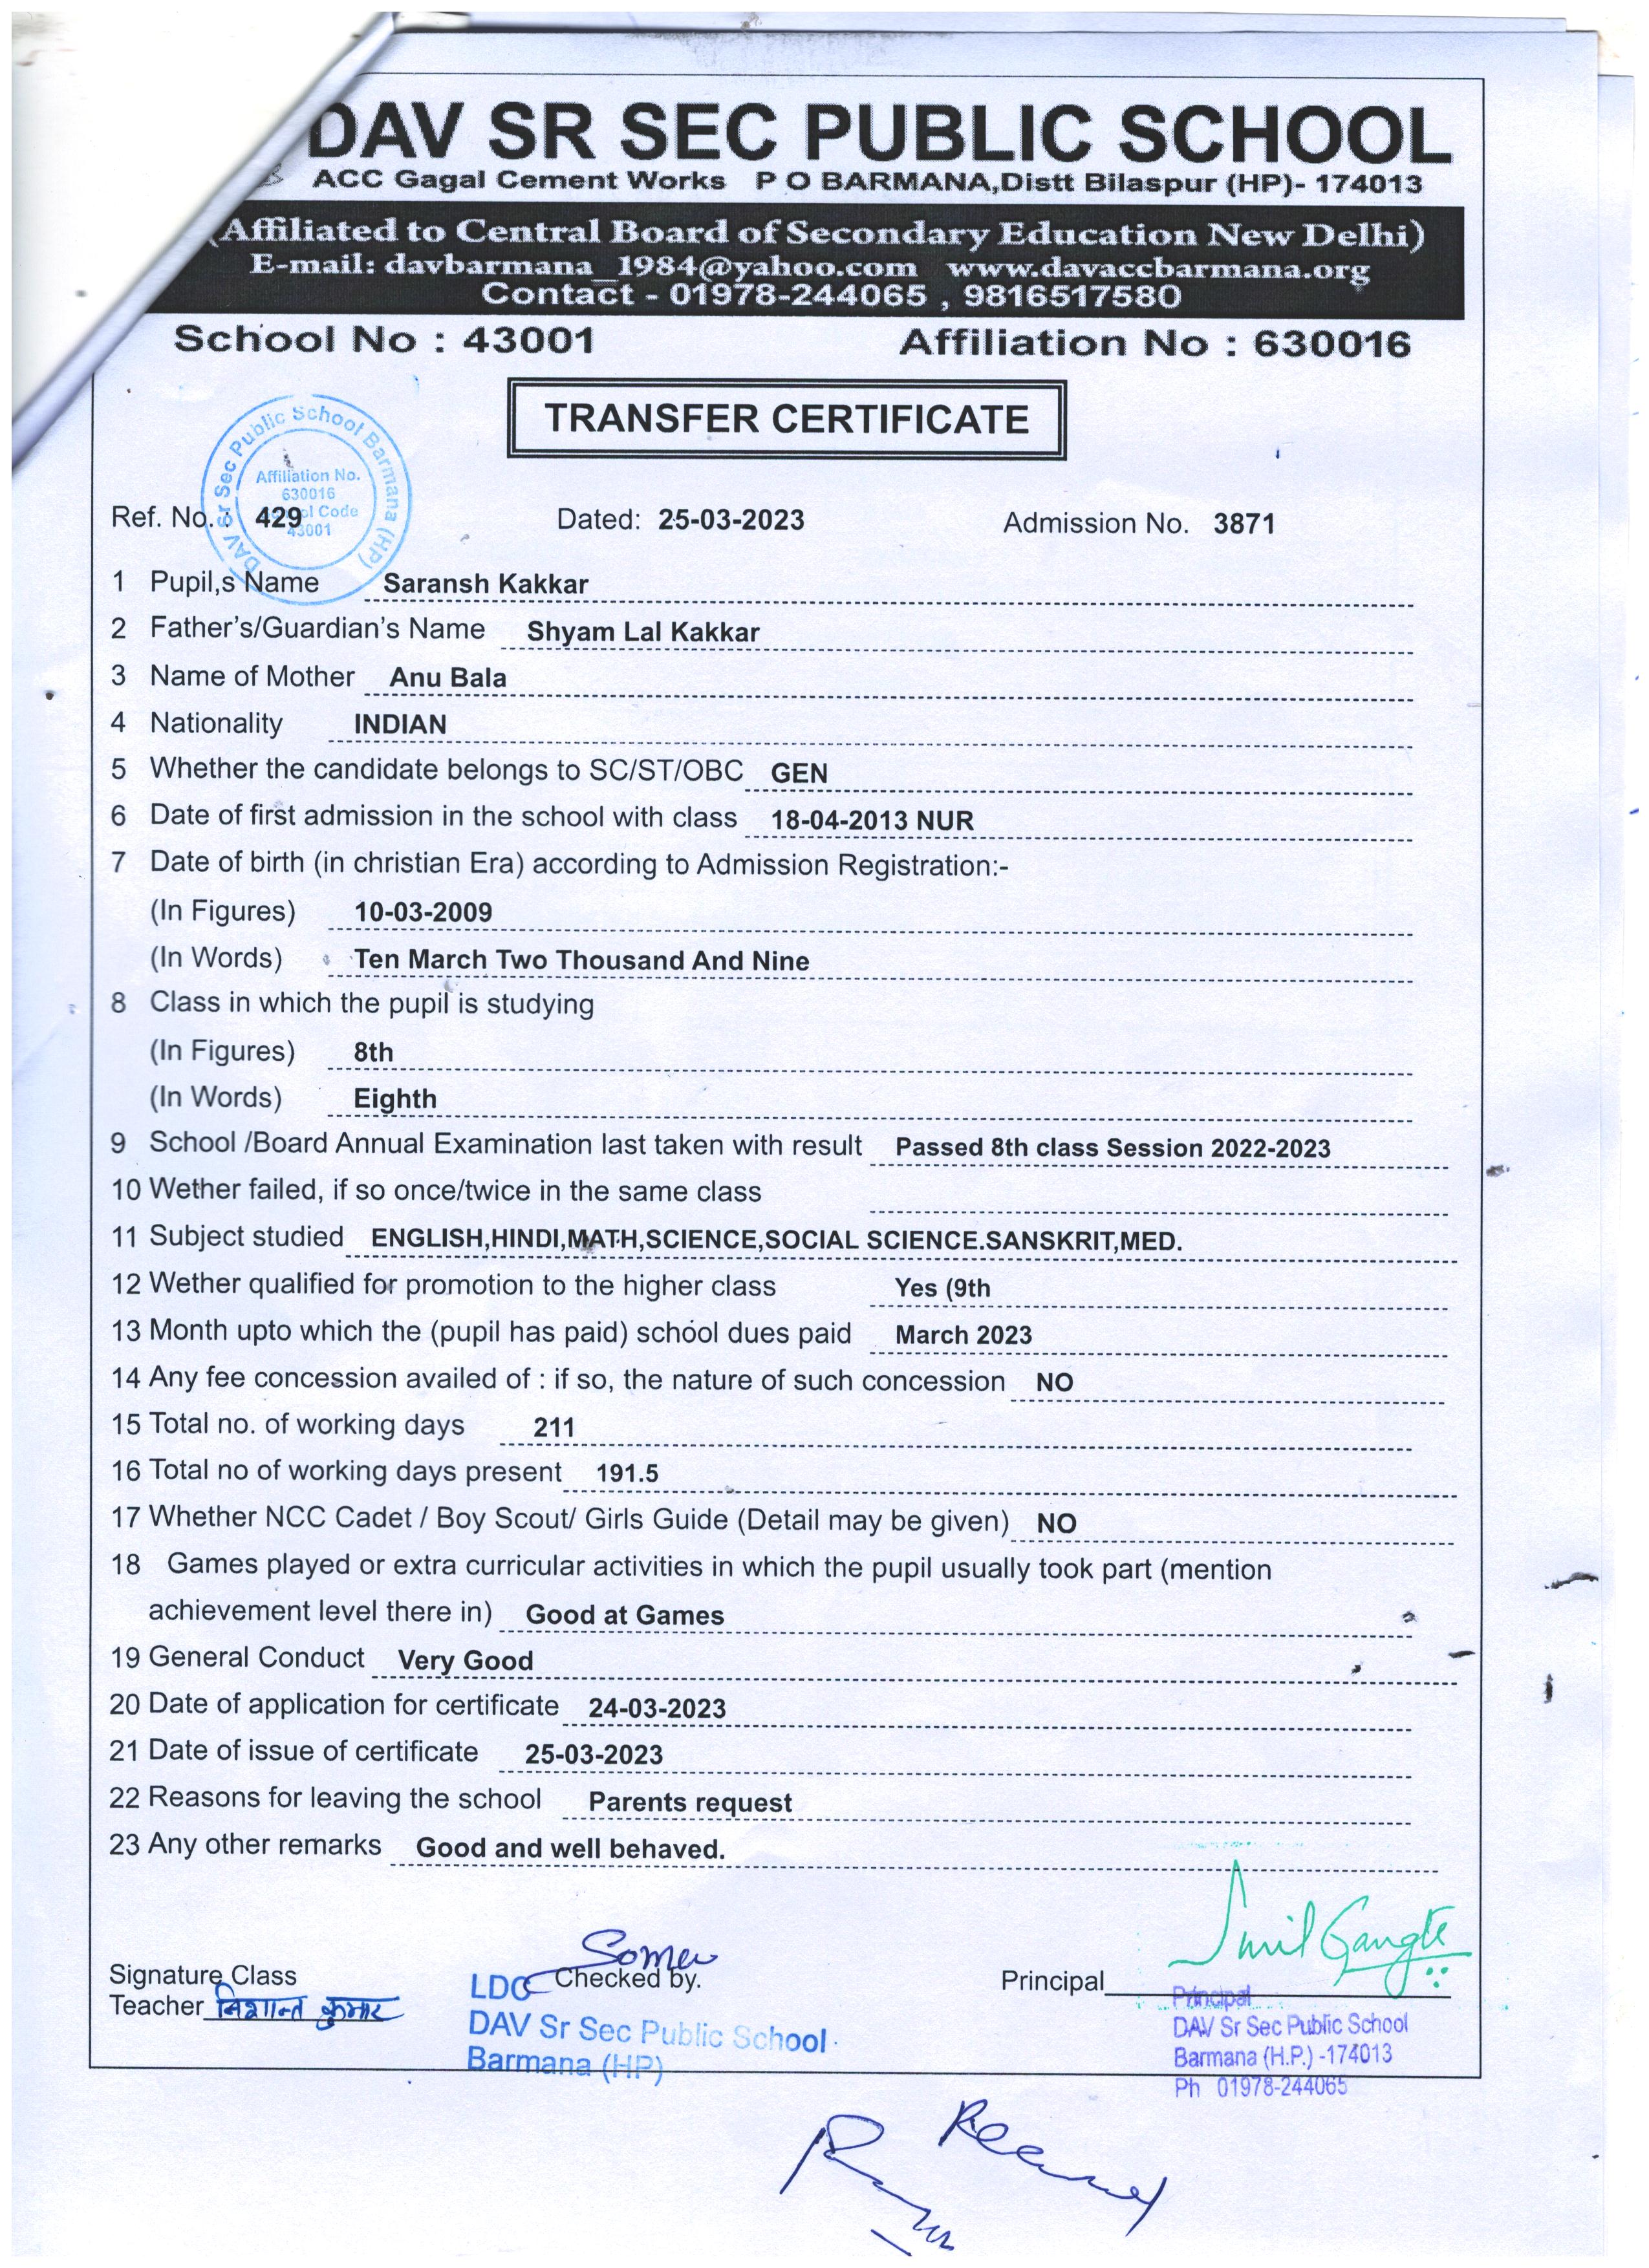 DAV SR SEC PUBLIC SCHOOL
ACC Gagal Cement Works P O BARMANA,Distt Bilaspur (HP)- 174013
(Affiliated to Central Board of Secondary Education New Delhi)
E-mail: davbarmana_1984@yahoo.com www.davaccbarmana.org
Contact - 01978-244065 , 9816517580
School No : 43001 Affiliation No : 630016
TRANSFER CERTIFICATE
DAV Sr Sec Public School Barmana (HP)
Affiliation No.
630016
Code
43001
Ref. No. : 429 Dated: 25-03-2023 Admission No. 3871
1 Pupil,s Name Saransh Kakkar
2 Father's/Guardian's Name Shyam Lal Kakkar
3 Name of Mother Anu Bala
4 Nationality INDIAN
5 Whether the candidate belongs to SC/ST/OBC GEN
6 Date of first admission in the school with class 18-04-2013 NUR
7 Date of birth (in christian Era) according to Admission Registration:-
(In Figures) 10-03-2009
(In Words) Ten March Two Thousand And Nine
8 Class in which the pupil is studying
(In Figures) 8th
(In Words) Eighth
9 School /Board Annual Examination last taken with result Passed 8th class Session 2022-2023
10 Wether failed, if so once/twice in the same class
11 Subject studied ENGLISH,HINDI,MATH,SCIENCE,SOCIAL SCIENCE.SANSKRIT,MED.
12 Wether qualified for promotion to the higher class Yes (9th
13 Month upto which the (pupil has paid) school dues paid March 2023
14 Any fee concession availed of : if so, the nature of such concession NO
15 Total no. of working days 211
16 Total no of working days present 191.5
17 Whether NCC Cadet / Boy Scout/ Girls Guide (Detail may be given) NO
18 Games played or extra curricular activities in which the pupil usually took part (mention
achievement level there in) Good at Games
19 General Conduct Very Good
20 Date of application for certificate 24-03-2023
21 Date of issue of certificate 25-03-2023
22 Reasons for leaving the school Parents request
23 Any other remarks Good and well behaved.
Signature Class
Teacher
LDC Checked by.
DAV Sr Sec Public School
Barmana (HP)
Principal
Principal
DAV Sr Sec Public School
Barmana (H.P.) -174013
Ph 01978-244065